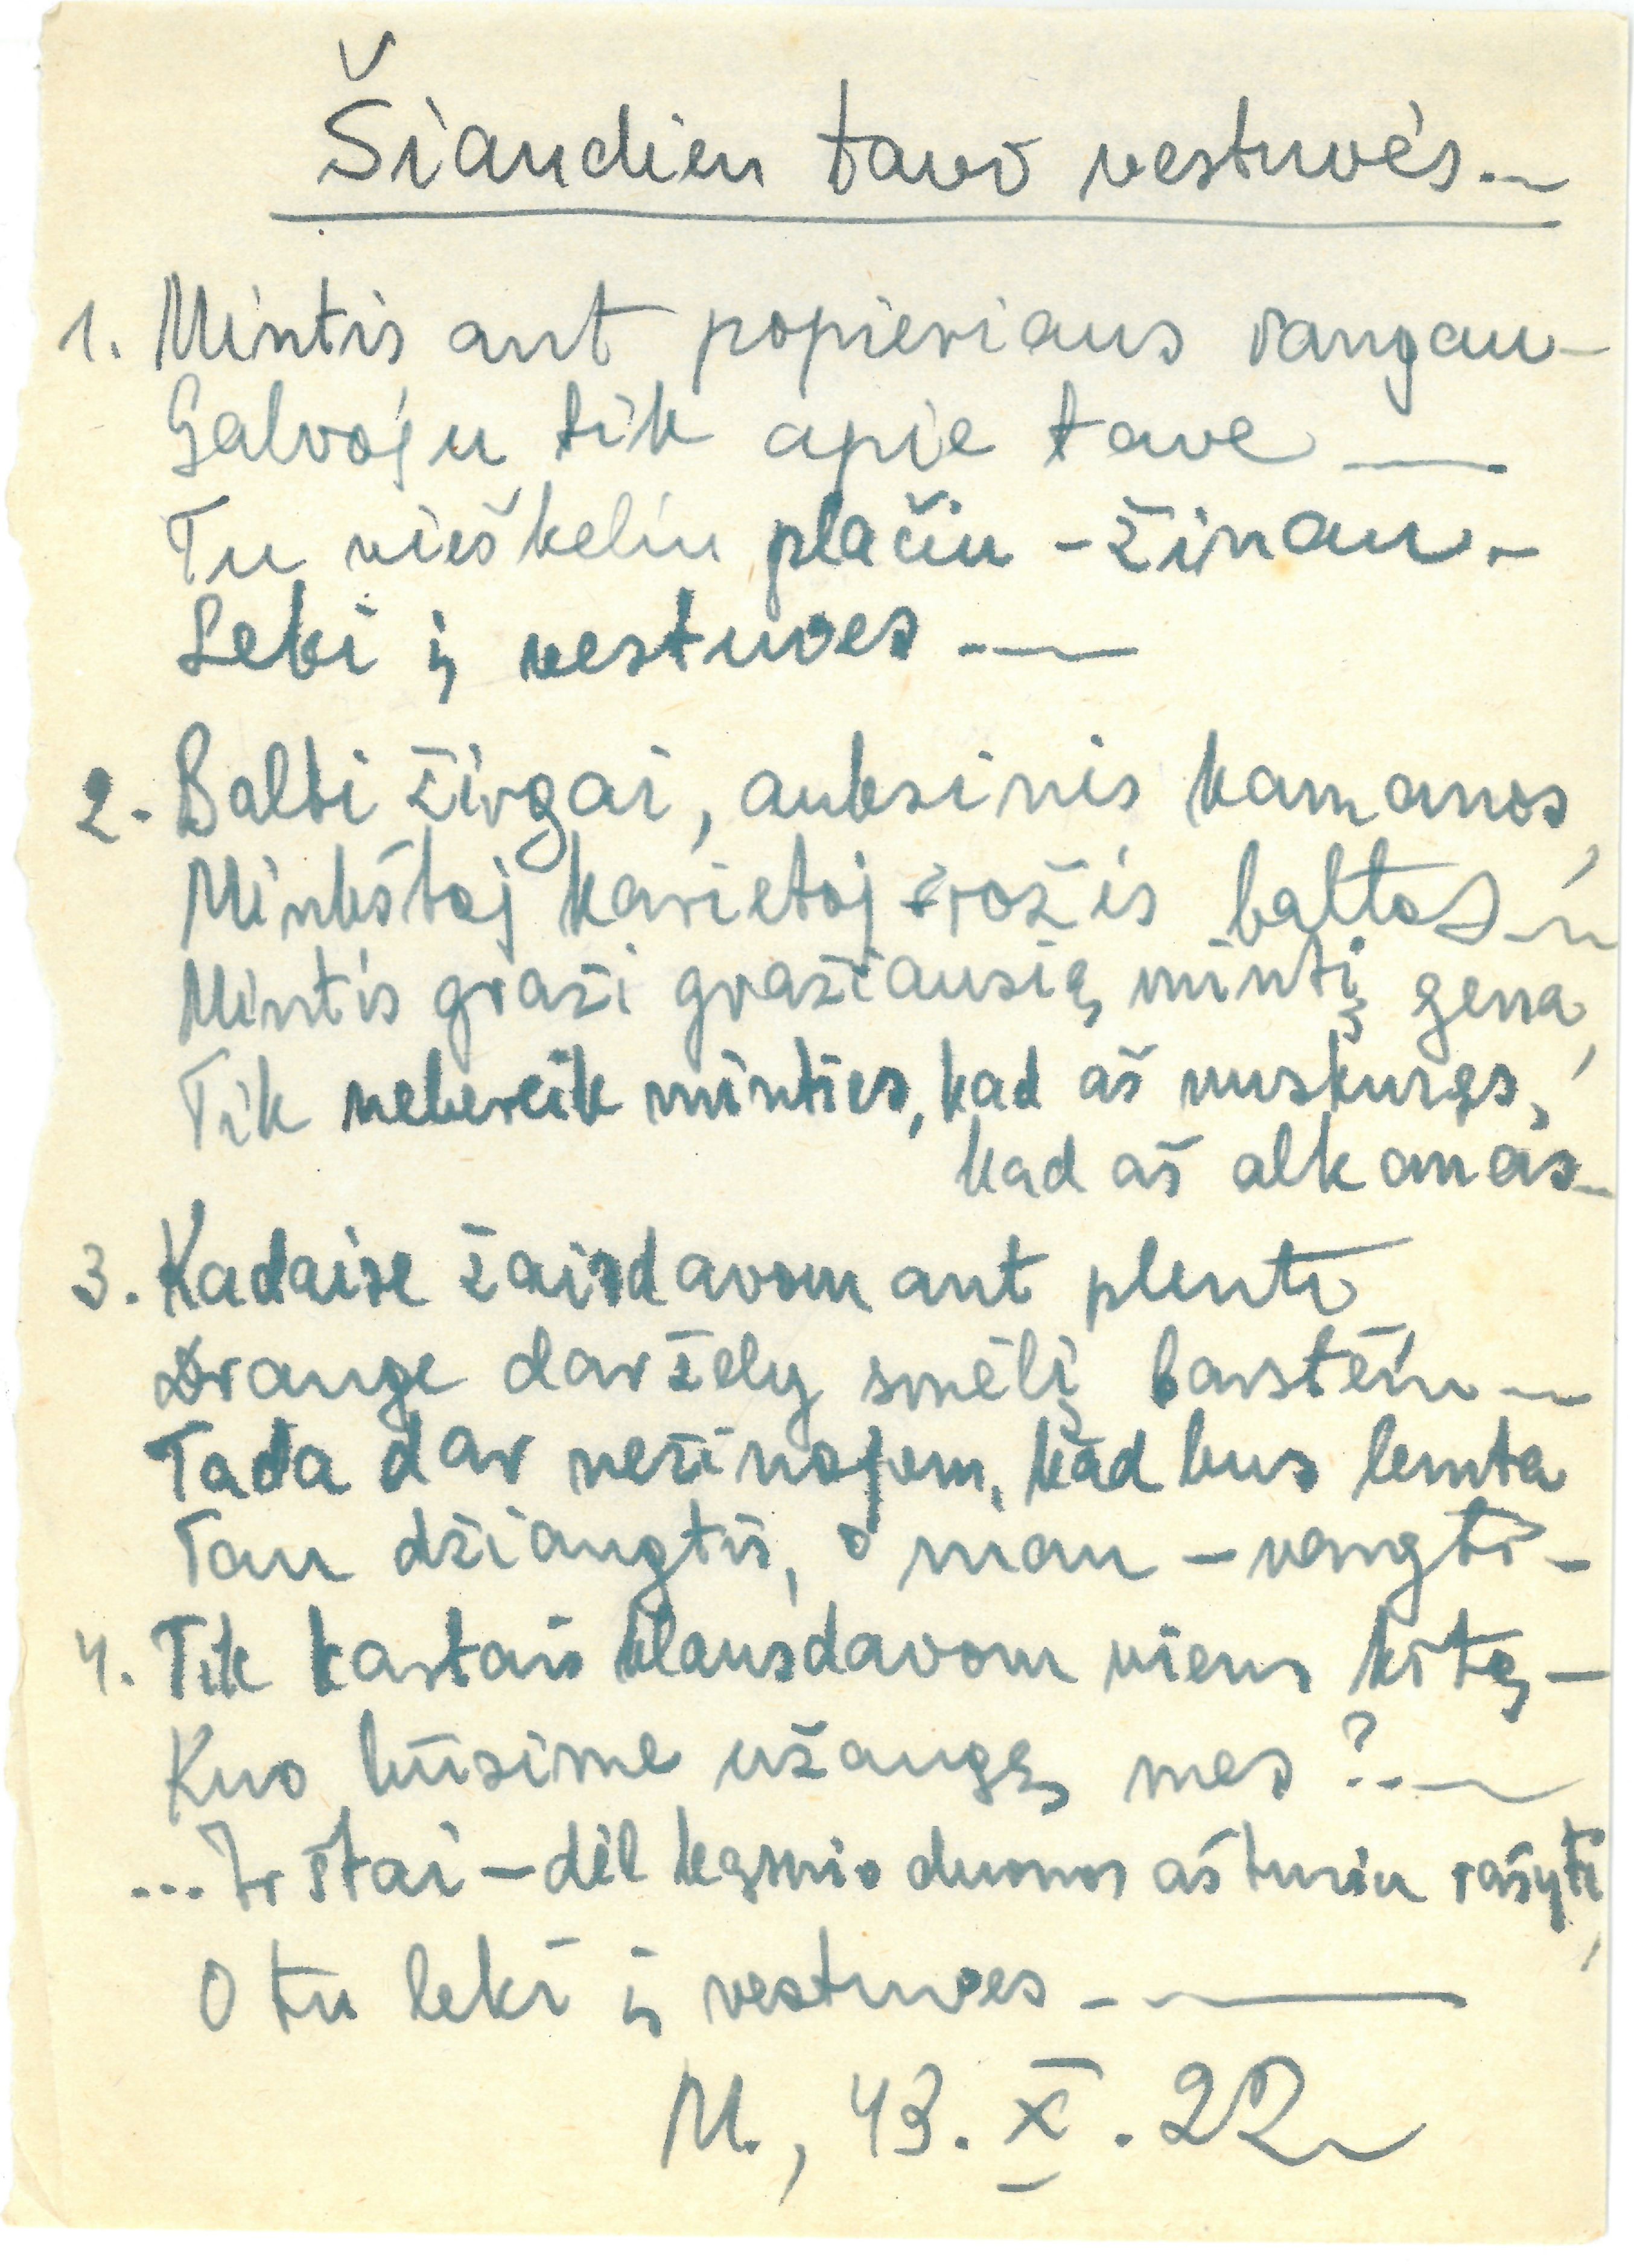 Šiandien tavo vestuvės.–
1. Mintis ant popieriaus rangau –
Galvoju tik apie tave —
Tu vieškeliu plačiu – žinau. –
Leki į vestuves. —
2. Balti žirgai, auksinis kamanos,
Minkštoj karietoj rožės baltos. –
Mintis graži gražiausią mintį gena,
Tik nebereik minties, kad aš nuskuręs,
kad aš alkanas –
3. Kadaise žaisdavom ant plento
Drauge daržely smėlį barstėm –
Tada dar nežinojom, kad bus lemta
Tau džiaugtis, o man – vargti –
4. Tik kartais klausdavom viens kitą –
Kuo būsime užaugę mes?.. –
... Ir štai – dėl kąsnio duonos aš turiu rašyti,
O tu leki į vestuves – —
M., 43. X. 22